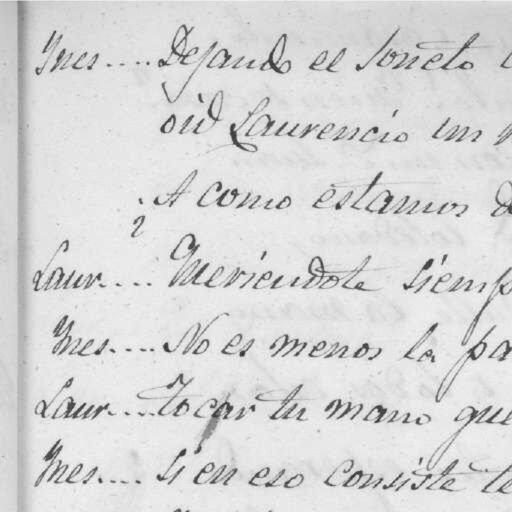 Ynes.... Dejando el soneto
oid Laurencio un
¿A como estamos d
Laur.... Queriendote siemp
Ynes.... No es menos la pa
Laur... tocar tu mano que
Ynes.... si en eso consiste te